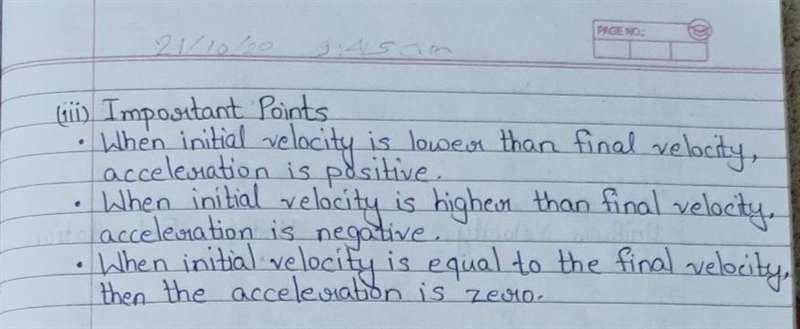 21/10/20 9:45am
PAGE NO.:
(iii) Important Points
• When initial velocity is lower than final velocity,
acceleration is positive.
• When initial velocity is higher than final velocity,
acceleration is negative.
• When initial velocity is equal to the final velocity,
then the acceleration is zero.